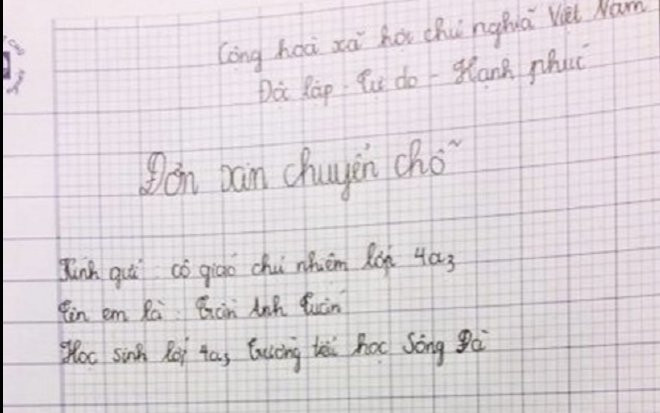 Cộng hoà xã hội chủ nghĩa Việt Nam
Độc lập - Tự do - Hạnh phúc
Đơn xin chuyển chỗ
Kính gửi cô giáo chủ nhiệm lớp 4a3
Tên em là: Trần Anh Tuấn
Học sinh lớp 4a3 trường tiểu học Sông Đà